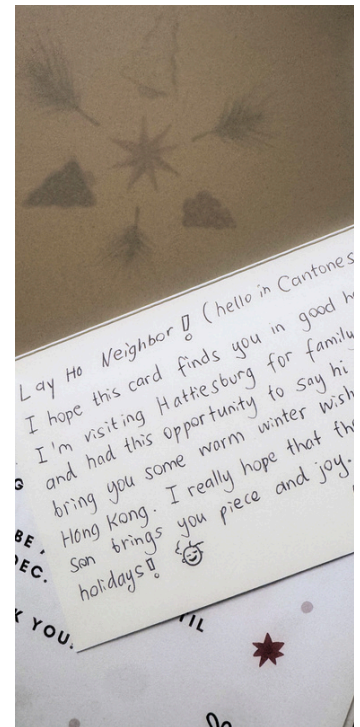 Lay Ho Neighbor! (hello in Cantones
I hope this card finds you in good h
I'm visiting Hattiesburg for family
and had this opportunity to say hi
bring you some warm winter wish
Hong Kong. I really hope that the
son brings you piece and joy.
holidays!
G
BE,
DEC.
K YOU.
TIL